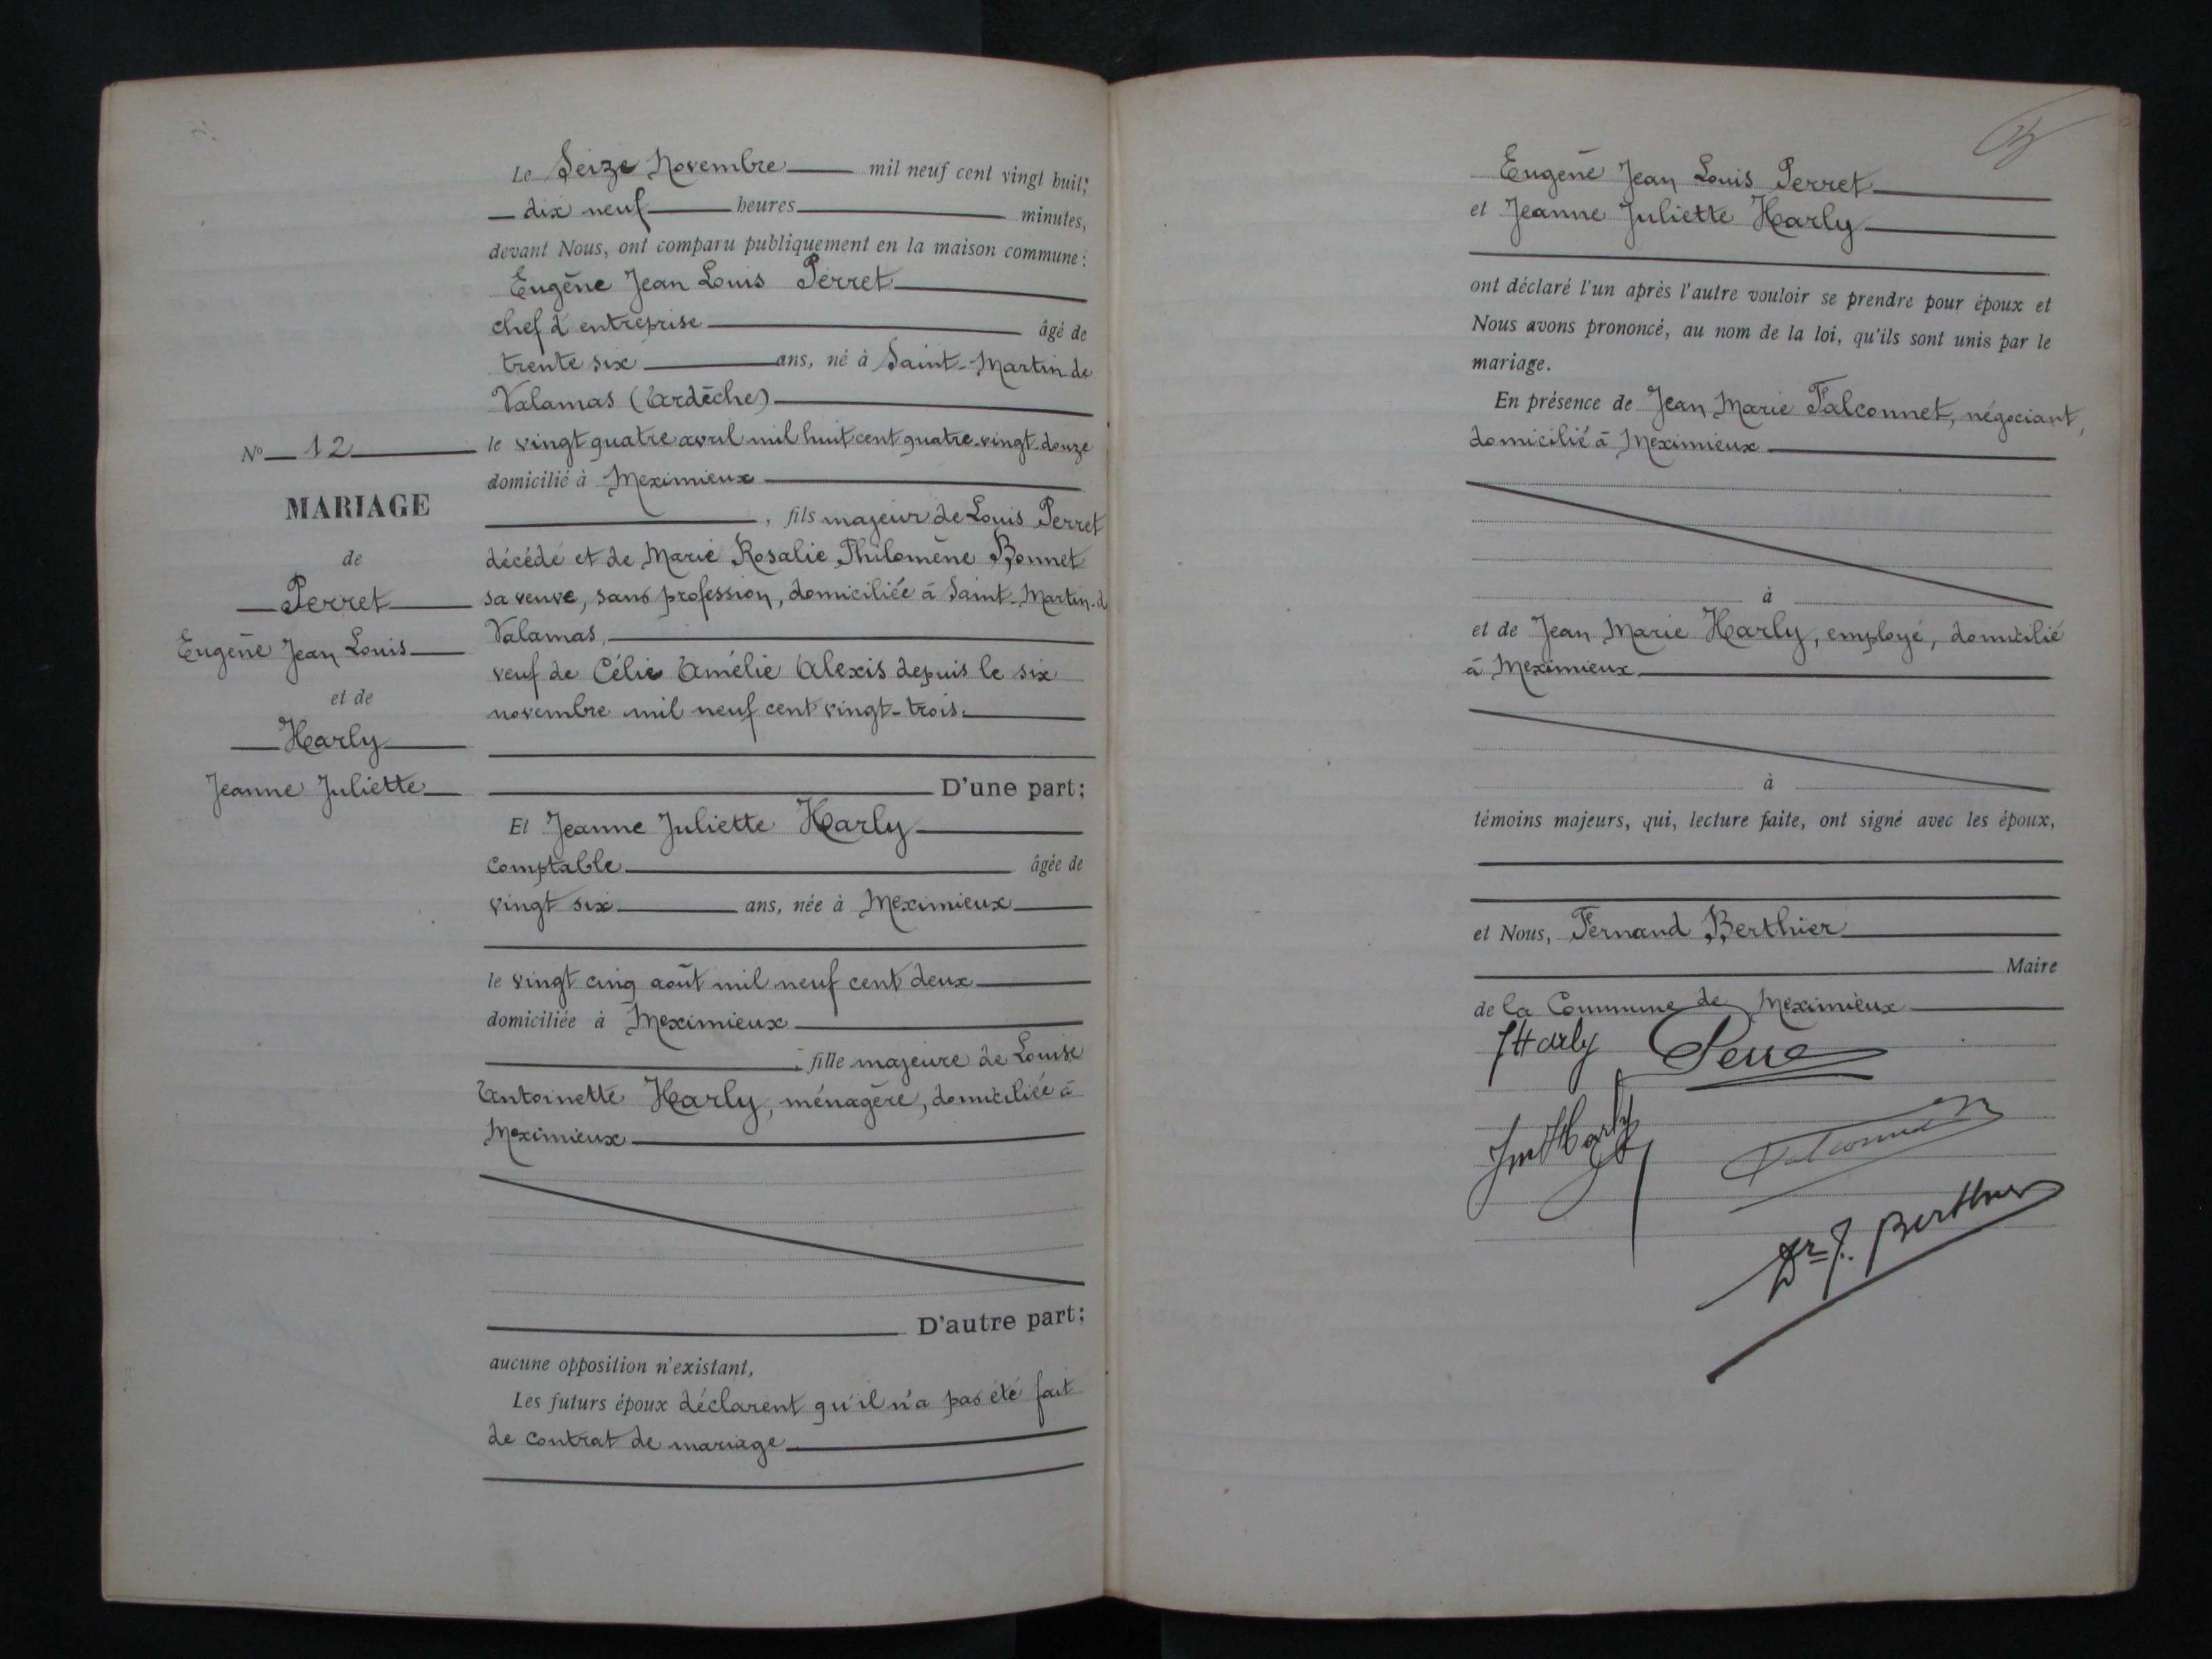 Le Seize Novembre mil neuf cent vingt huit;
dix neuf heures minutes,
devant Nous, ont comparu publiquement en la maison commune :
Eugène Jean Louis Perret
chef d'entreprise âgé de
trente six ans, né à Saint-Martin de
Valamas (Ardèche)
le vingt quatre avril mil huit cent quatre-vingt-douze
domicilié à Meximieux
, fils majeur de Louis Perret
décédé et de Marie Rosalie Philomène Bonnet
sa veuve, sans profession, domiciliée à Saint-Martin-d
Valamas,
veuf de Célie Amélie Alexis depuis le six
novembre mil neuf cent vingt-trois.
D'une part;
Et Jeanne Juliette Harly
comptable âgée de
vingt six ans, née à Meximieux
le vingt cinq août mil neuf cent deux
domiciliée à Meximieux
, fille majeure de Louise
Antoinette Harly, ménagère, domiciliée à
Meximieux
D'autre part;
aucune opposition n'existant,
Les futurs époux déclarent qu'il n'a pas été fait
de contrat de mariage
No 12
MARIAGE
de
Perret
Eugène Jean Louis
et de
Harly
Jeanne Juliette
Eugène Jean Louis Perret
et Jeanne Juliette Harly
ont déclaré l'un après l'autre vouloir se prendre pour époux et
Nous avons prononcé, au nom de la loi, qu'ils sont unis par le
mariage.
En présence de Jean Marie Falconnet, négociant,
domicilié à Meximieux
à
et de Jean Marie Harly, employé, domicilié
à Meximieux
à
témoins majeurs, qui, lecture faite, ont signé avec les époux,
et Nous, Fernand Berthier
Maire
de la Commune de Meximieux
J Harly Perre
Jm Harly
Falconnet
Dr F. Berthier